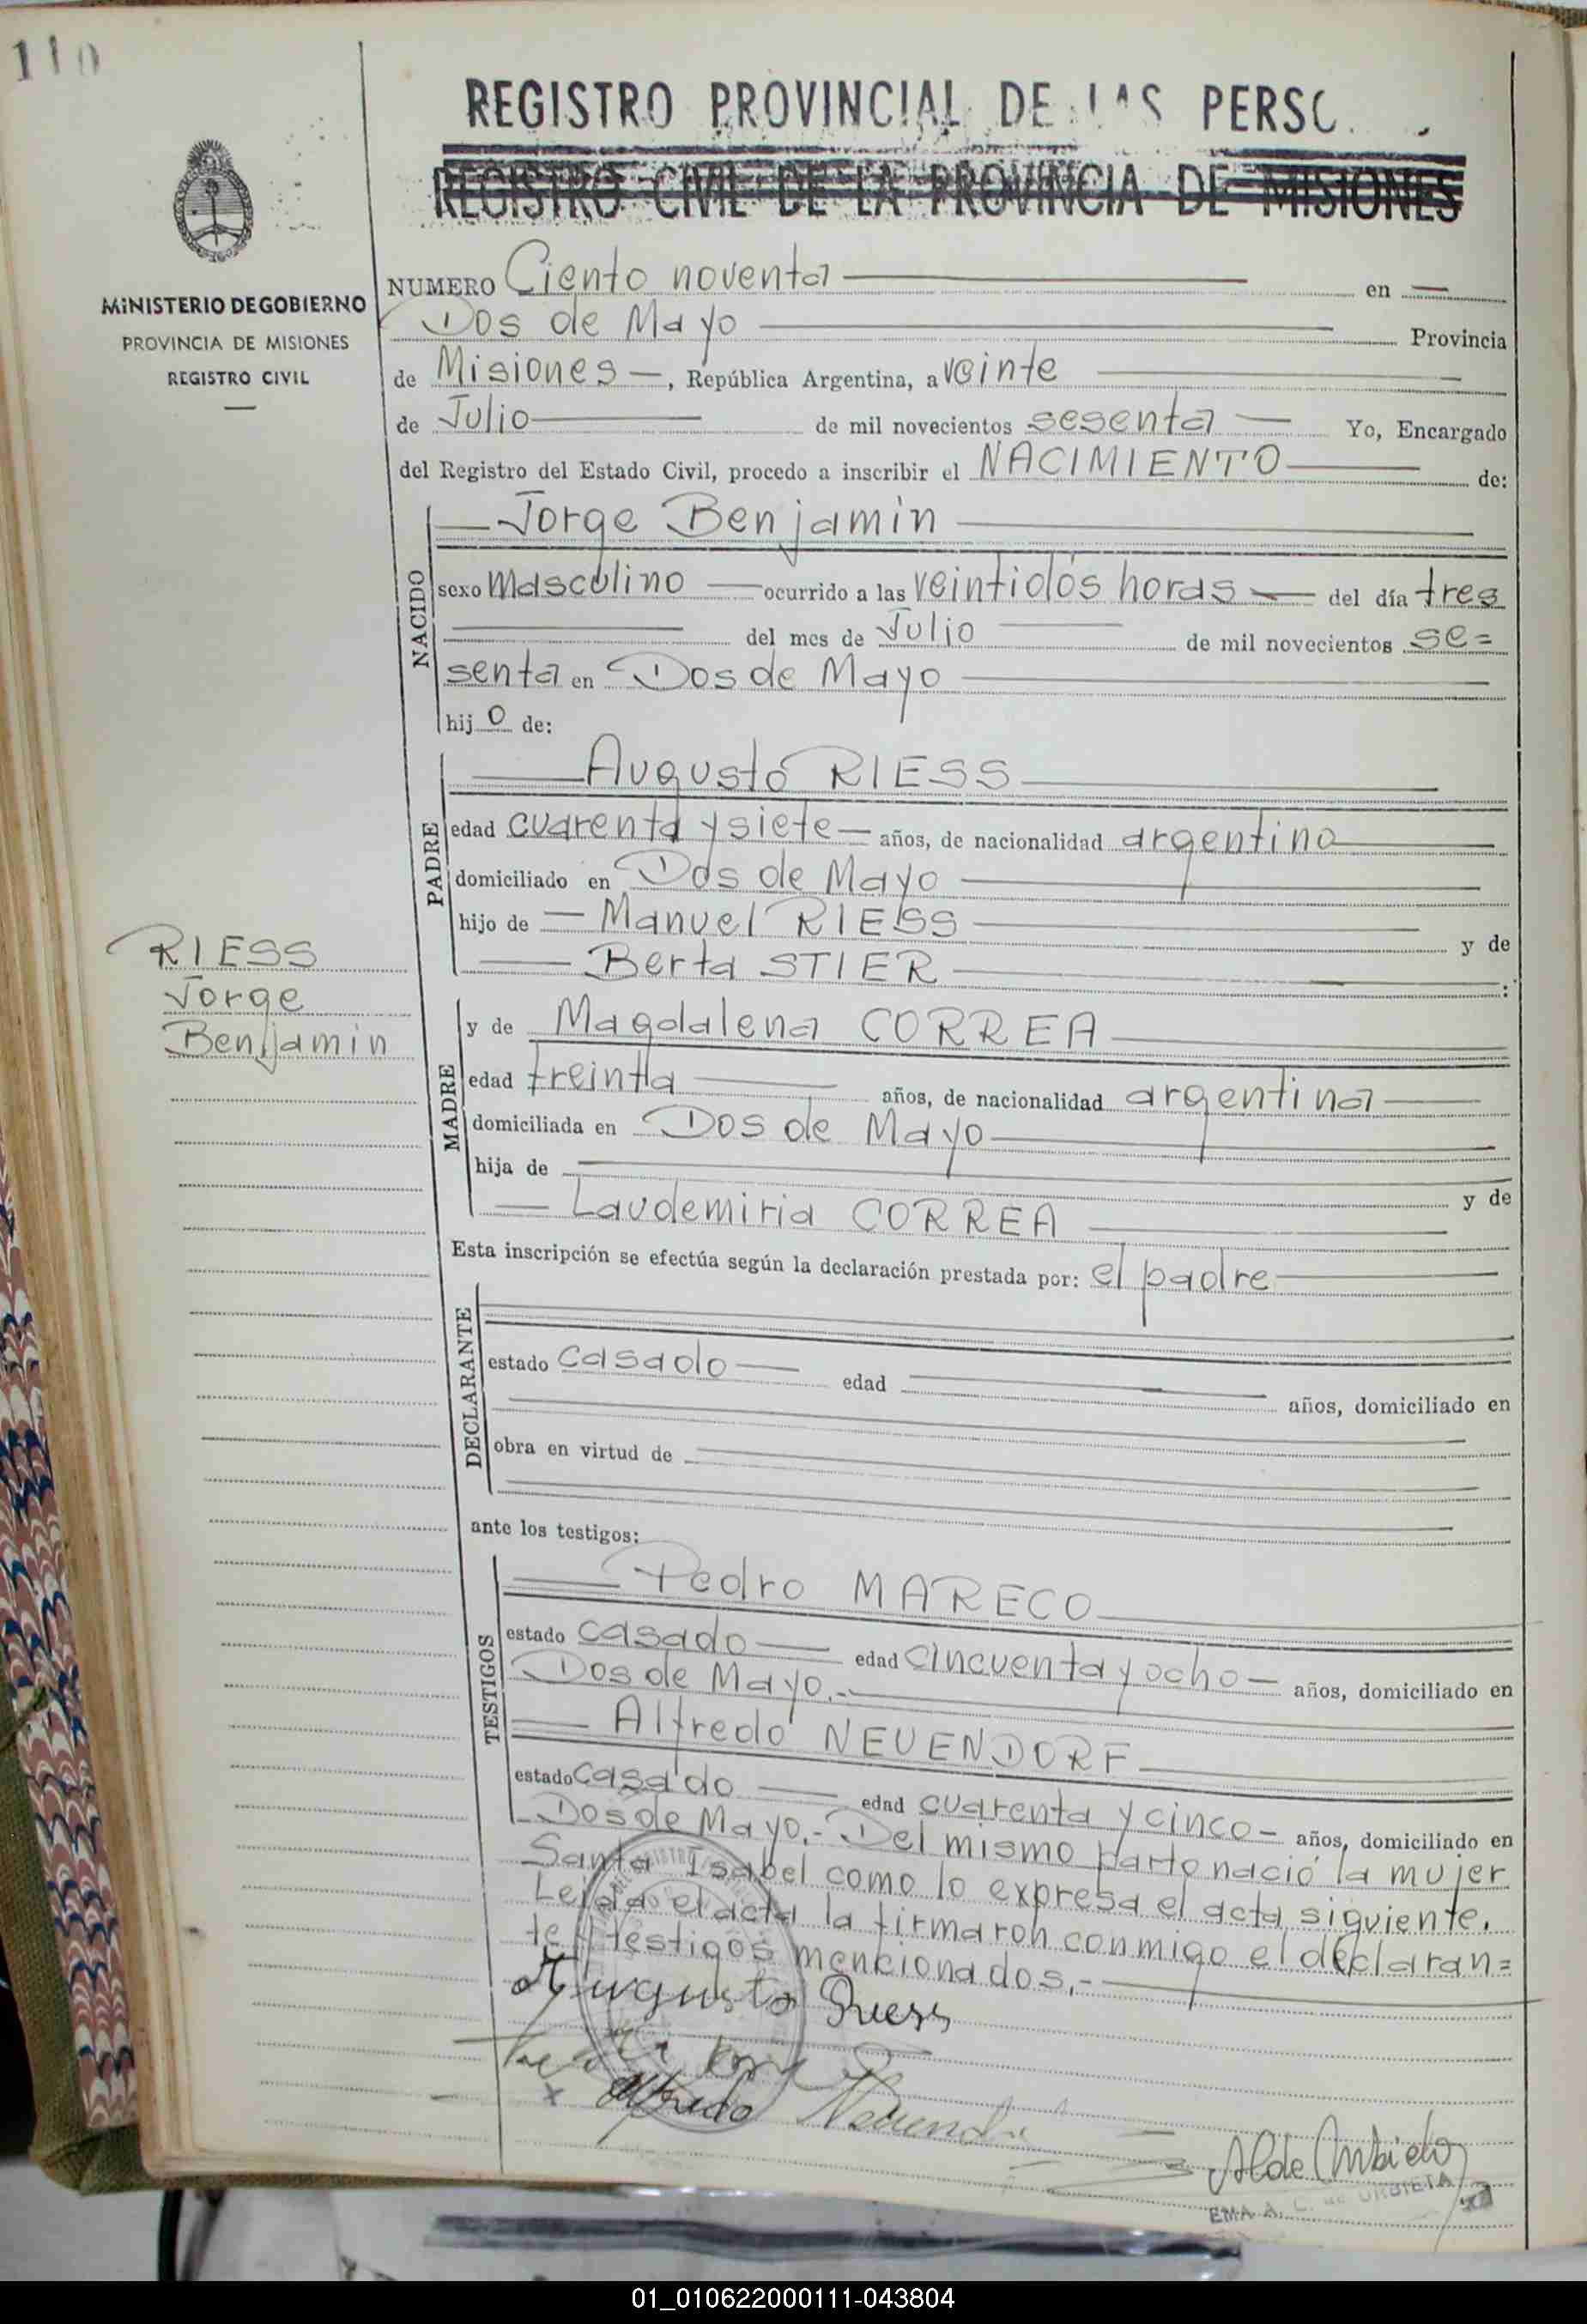 110
REGISTRO PROVINCIAL DE LAS PERSO
REGISTRO CIVIL DE LA PROVINCIA DE MISIONES
MINISTERIO DE GOBIERNO
PROVINCIA DE MISIONES
REGISTRO CIVIL
NUMERO Ciento noventa en
Dos de Mayo Provincia
de Misiones, República Argentina, a veinte
de Julio de mil novecientos sesenta Yo, Encargado
del Registro del Estado Civil, procedo a inscribir el NACIMIENTO de:
NACIDO
Jorge Benjamin
sexo masculino ocurrido a las veintidós horas del día tres
del mes de Julio de mil novecientos se=
senta en Dos de Mayo
hijo de:
PADRE
Augusto RIESS
edad cuarenta y siete años, de nacionalidad argentina
domiciliado en Dos de Mayo
hijo de Manuel RIESS y de
Berta STIER
RIESS
Jorge
Benjamin
MADRE
y de Magdalena CORREA
edad treinta años, de nacionalidad argentina
domiciliada en Dos de Mayo
hija de y de
Laudemiria CORREA
Esta inscripción se efectúa según la declaración prestada por: el padre
DECLARANTE
estado casado edad años, domiciliado en
obra en virtud de
ante los testigos:
TESTIGOS
Pedro MARECO
estado casado edad cincuenta y ocho años, domiciliado en
Dos de Mayo.-
Alfredo NEUENDORF
estado casado edad cuarenta y cinco años, domiciliado en
Dos de Mayo.- Del mismo parto nació la mujer
Santa Isabel como lo expresa el acta siguiente.
Leida el acta la firmaron conmigo el declaran=
te y testigos mencionados.-
Augusto Riess
Alfredo
EMA A. C. de URBIETA
01_010622000111-043804